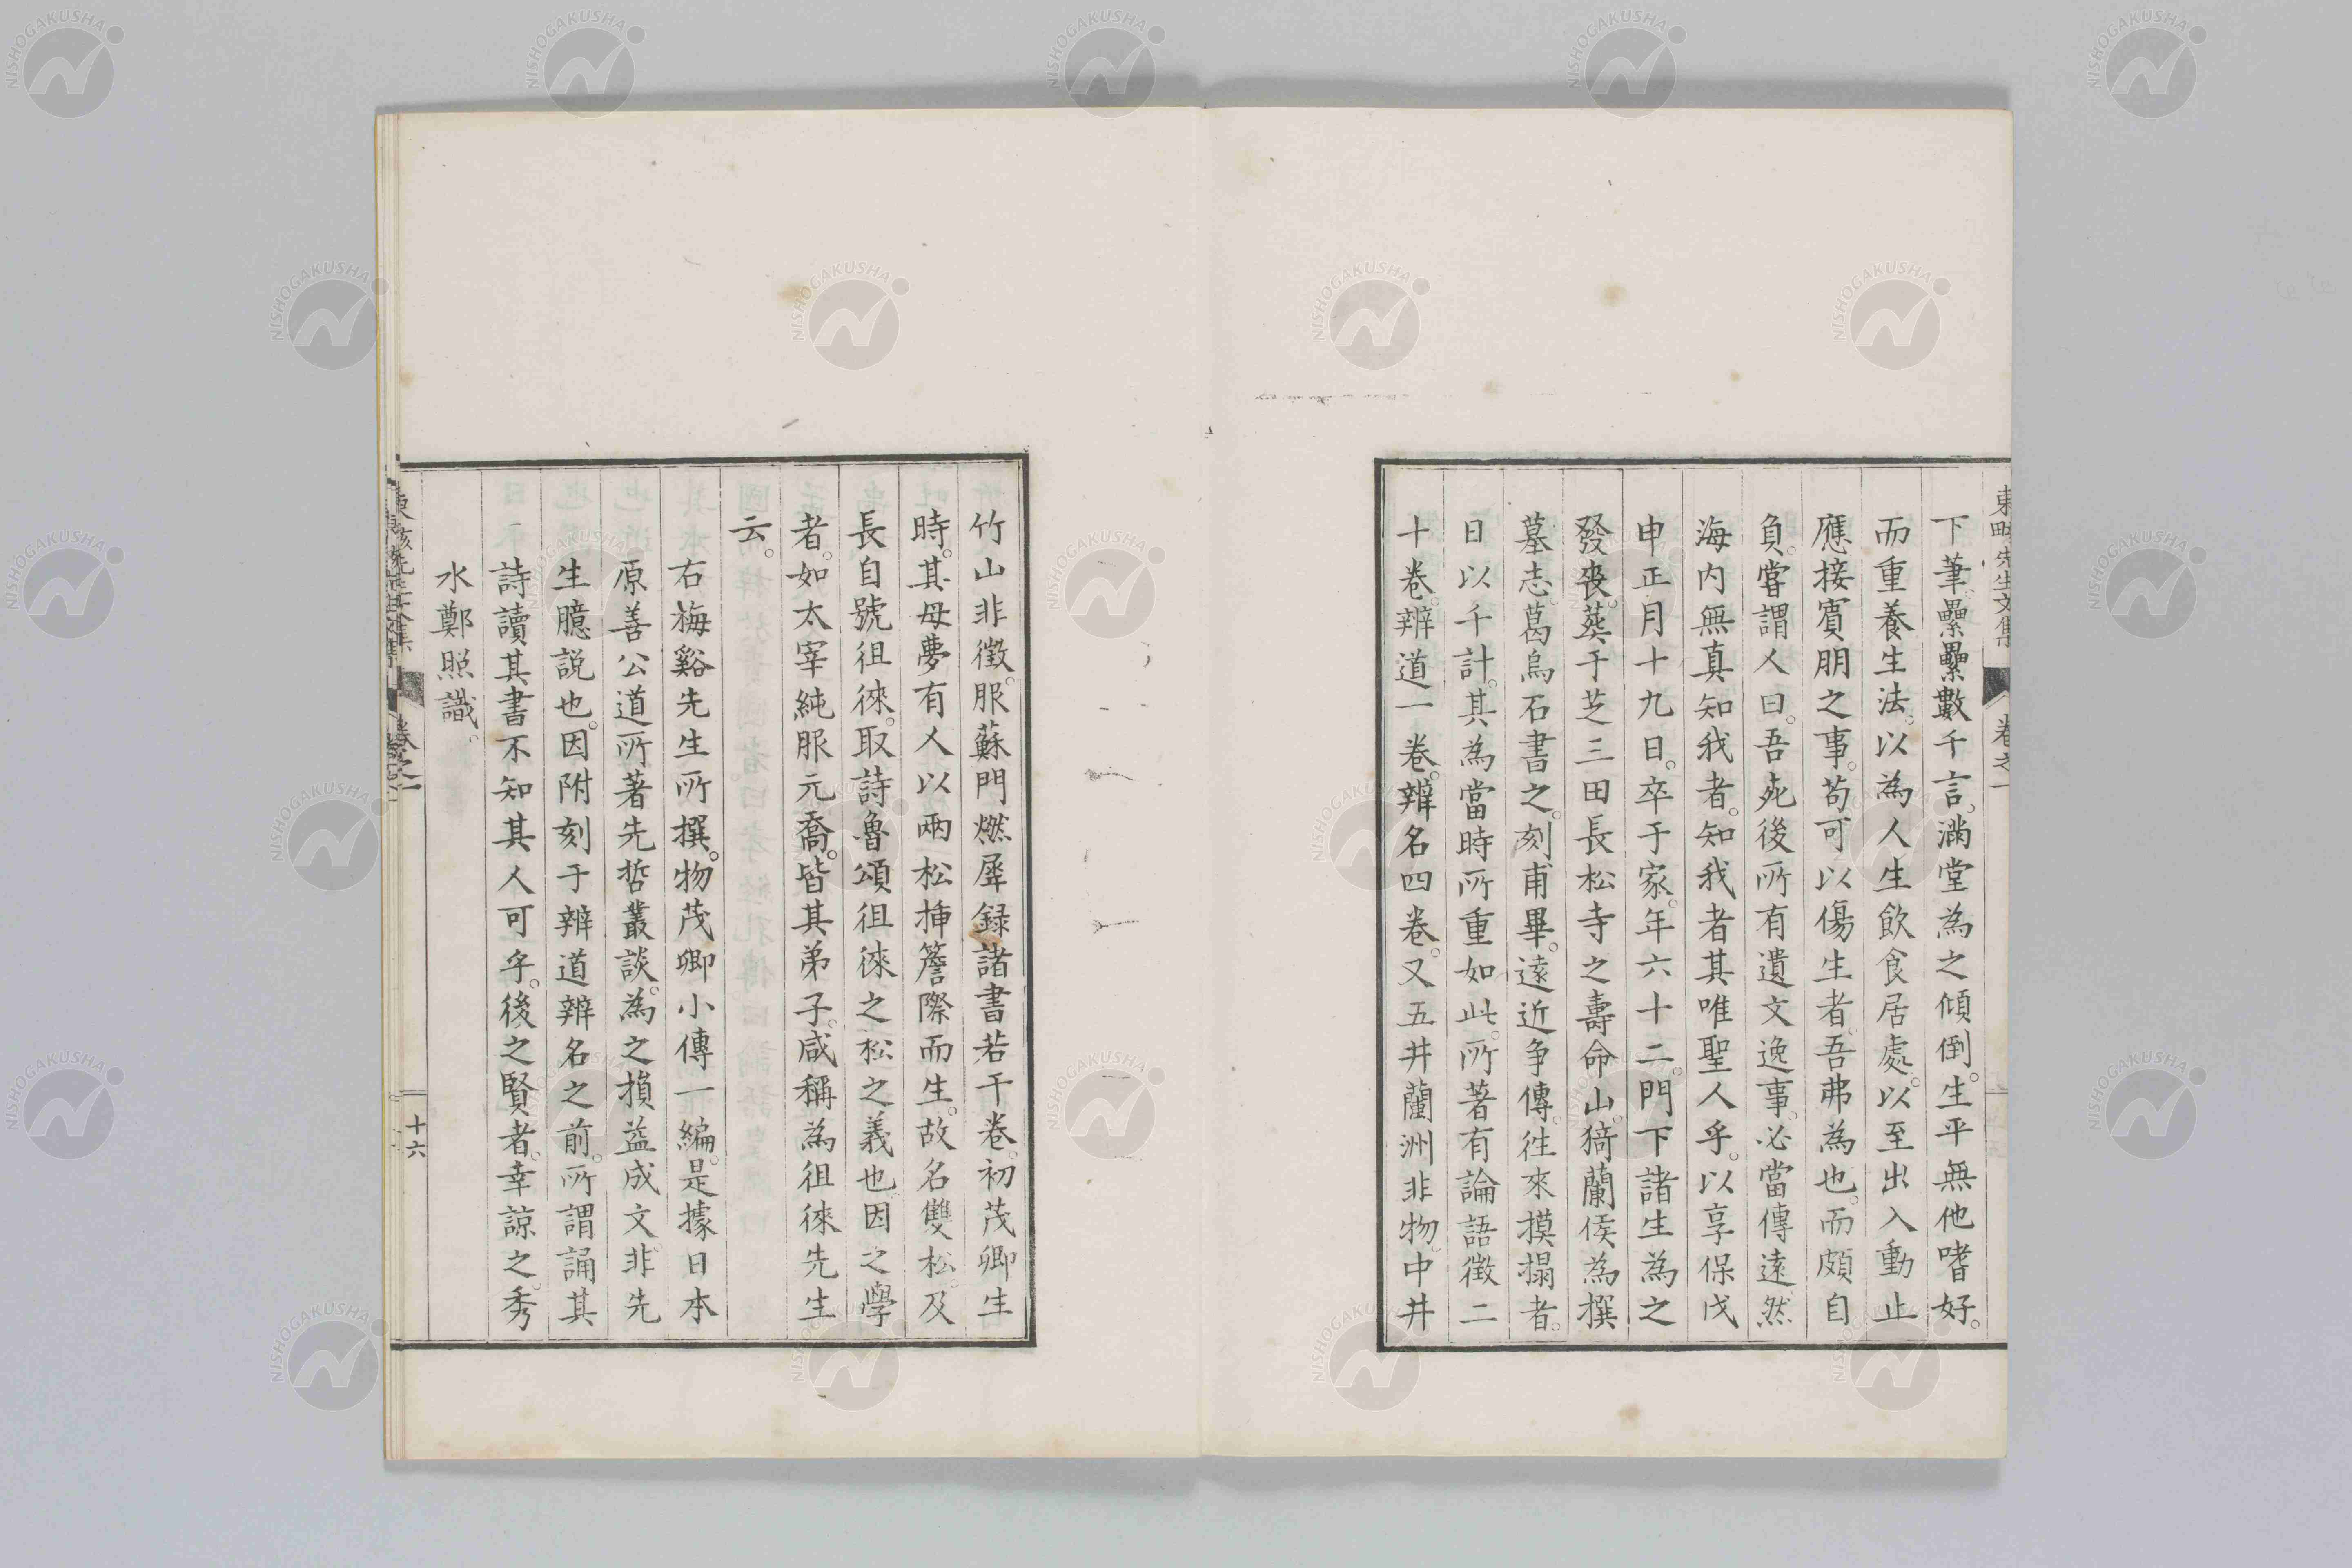 下筆。纍纍數千言。滿堂為之傾倒。生平無他嗜好。
而重養生法。以為人生飲食居處。以至出入動止
應接賓朋之事。苟可以傷生者。吾弗為也。而頗自
負。嘗謂人曰。吾死後所有遺文逸事。必當傳遠。然
海內無真知我者。知我者其唯聖人乎。以享保戊
申正月十九日。卒于家。年六十二。門下諸生為之
發喪。葬于芝三田長松寺之壽命山。猗蘭侯為撰
墓志。葛烏石書之。刻甫畢。遠近爭傳。往來摸搨者。
日以千計。其為當時所重如此。所著有論語徵二
十卷。辨道一卷。辨名四卷。又五井蘭洲非物。中井
竹山非徵。服蘇門燃犀録諸書若干卷。初茂卿生
時。其母夢有人以兩松挿簷際而生。故名雙松。及
長自號徂徠。取詩魯頌徂徠之松之義也因之學
者。如太宰純服元喬。皆其弟子。咸稱為徂徠先生
云。
右梅谿先生所撰。物茂卿小傳一編。是據日本
原善公道所著先哲叢談。為之損益成文。非先
生臆説也。因附刻于辨道辨名之前。所謂誦其
詩讀其書不知其人可乎。後之賢者。幸諒之。秀
水鄭照識。
卷之一
十六